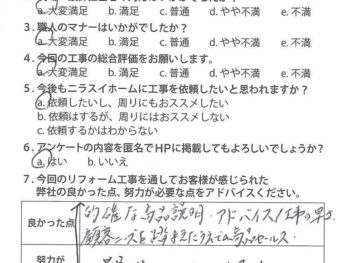 a.大変満足 b.満足 c.普通 d.やや不満 e.不満
3.職人のマナーはいかがでしたか?
a.大変満足 b.満足 c.普通 d.やや不満 e.不満
4.今回の工事の総合評価をお願いします。
a.大変満足 b.満足 c.普通 d.やや不満 e.不満
5.今後もニラスイホームに工事を依頼したいと思われますか?
a.依頼したいし、周りにもおススメしたい
b.依頼はするが、周りにはおススメしない
c.依頼するかはわからない
6.アンケートの内容を匿名でHPに掲載してもよろしいでしょうか?
a.はい b.いいえ
7.今回のリフォーム工事を通してお客様が感じられた
弊社の良かった点、努力が必要な点をアドバイスください。
良かった点 的確な商品説明・アドバイス/工事の早さ
顧客ニーズを 商品セールス.
努力が